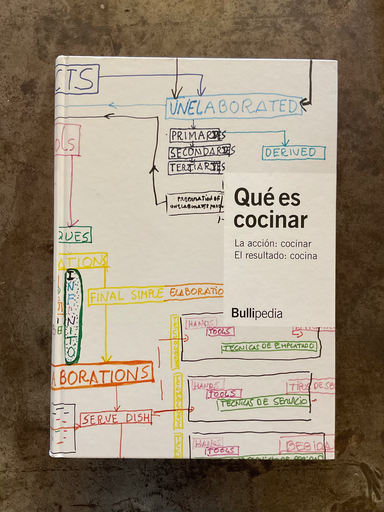 CTS
UNELABORATED
PRIMARIES
SECONDARIES
TERTIARIES
DERIVED
PREPARATION OF
Qué es
cocinar
La acción: cocinar
El resultado: cocina
QUES
ATIONS
INFINITO
FINAL SIMPLE ELABORATIO
Bullipedia
HANDS
TOOLS
TECNICAS DE EMPLATADO
BORATIONS
HANDS
TOOLS
TECNICAS DE SERVICIO
SERVE DISH
HANDS
TOOLS
BEBIDA